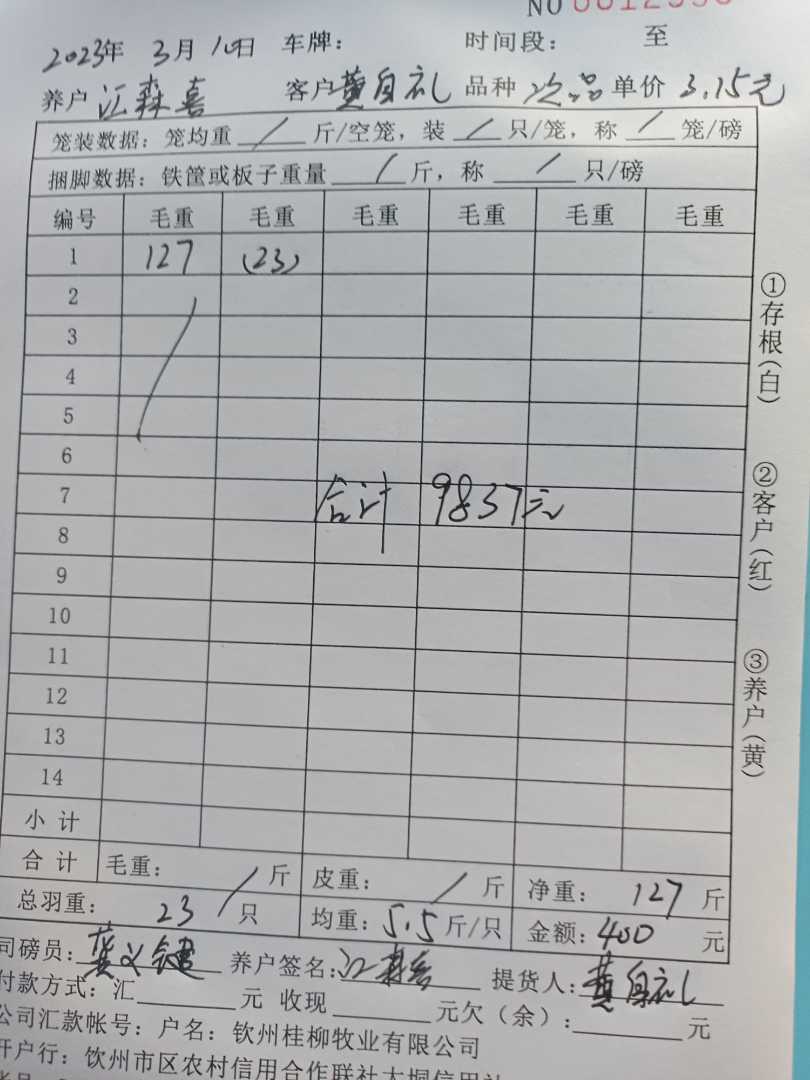 NO 0012556
2023年 3月10日 车牌： 时间段： 至
养户 江森喜 客户 黄自礼 品种 次品 单价 3.15元
笼装数据：笼均重 / 斤/空笼，装 / 只/笼，称 / 笼/磅
捆脚数据：铁筐或板子重量 / 斤，称 / 只/磅
编号 毛重 毛重 毛重 毛重 毛重 毛重
1 127 (23)
2
3
4
5
6
7 合计 9837元
8
9
10
11
12
13
14
小计
合计 毛重： / 斤 皮重： / 斤 净重： 127 斤
总羽重： 23 只 均重：5.5斤/只 金额：400 元
司磅员：龚义键 养户签名：江森喜 提货人：黄自礼
付款方式：汇 元 收现 元欠（余）： 元
公司汇款帐号：户名：钦州桂柳牧业有限公司
开户行：钦州市区农村信用合作联社大垌信用社
①存根（白）
②客户（红）
③养户（黄）